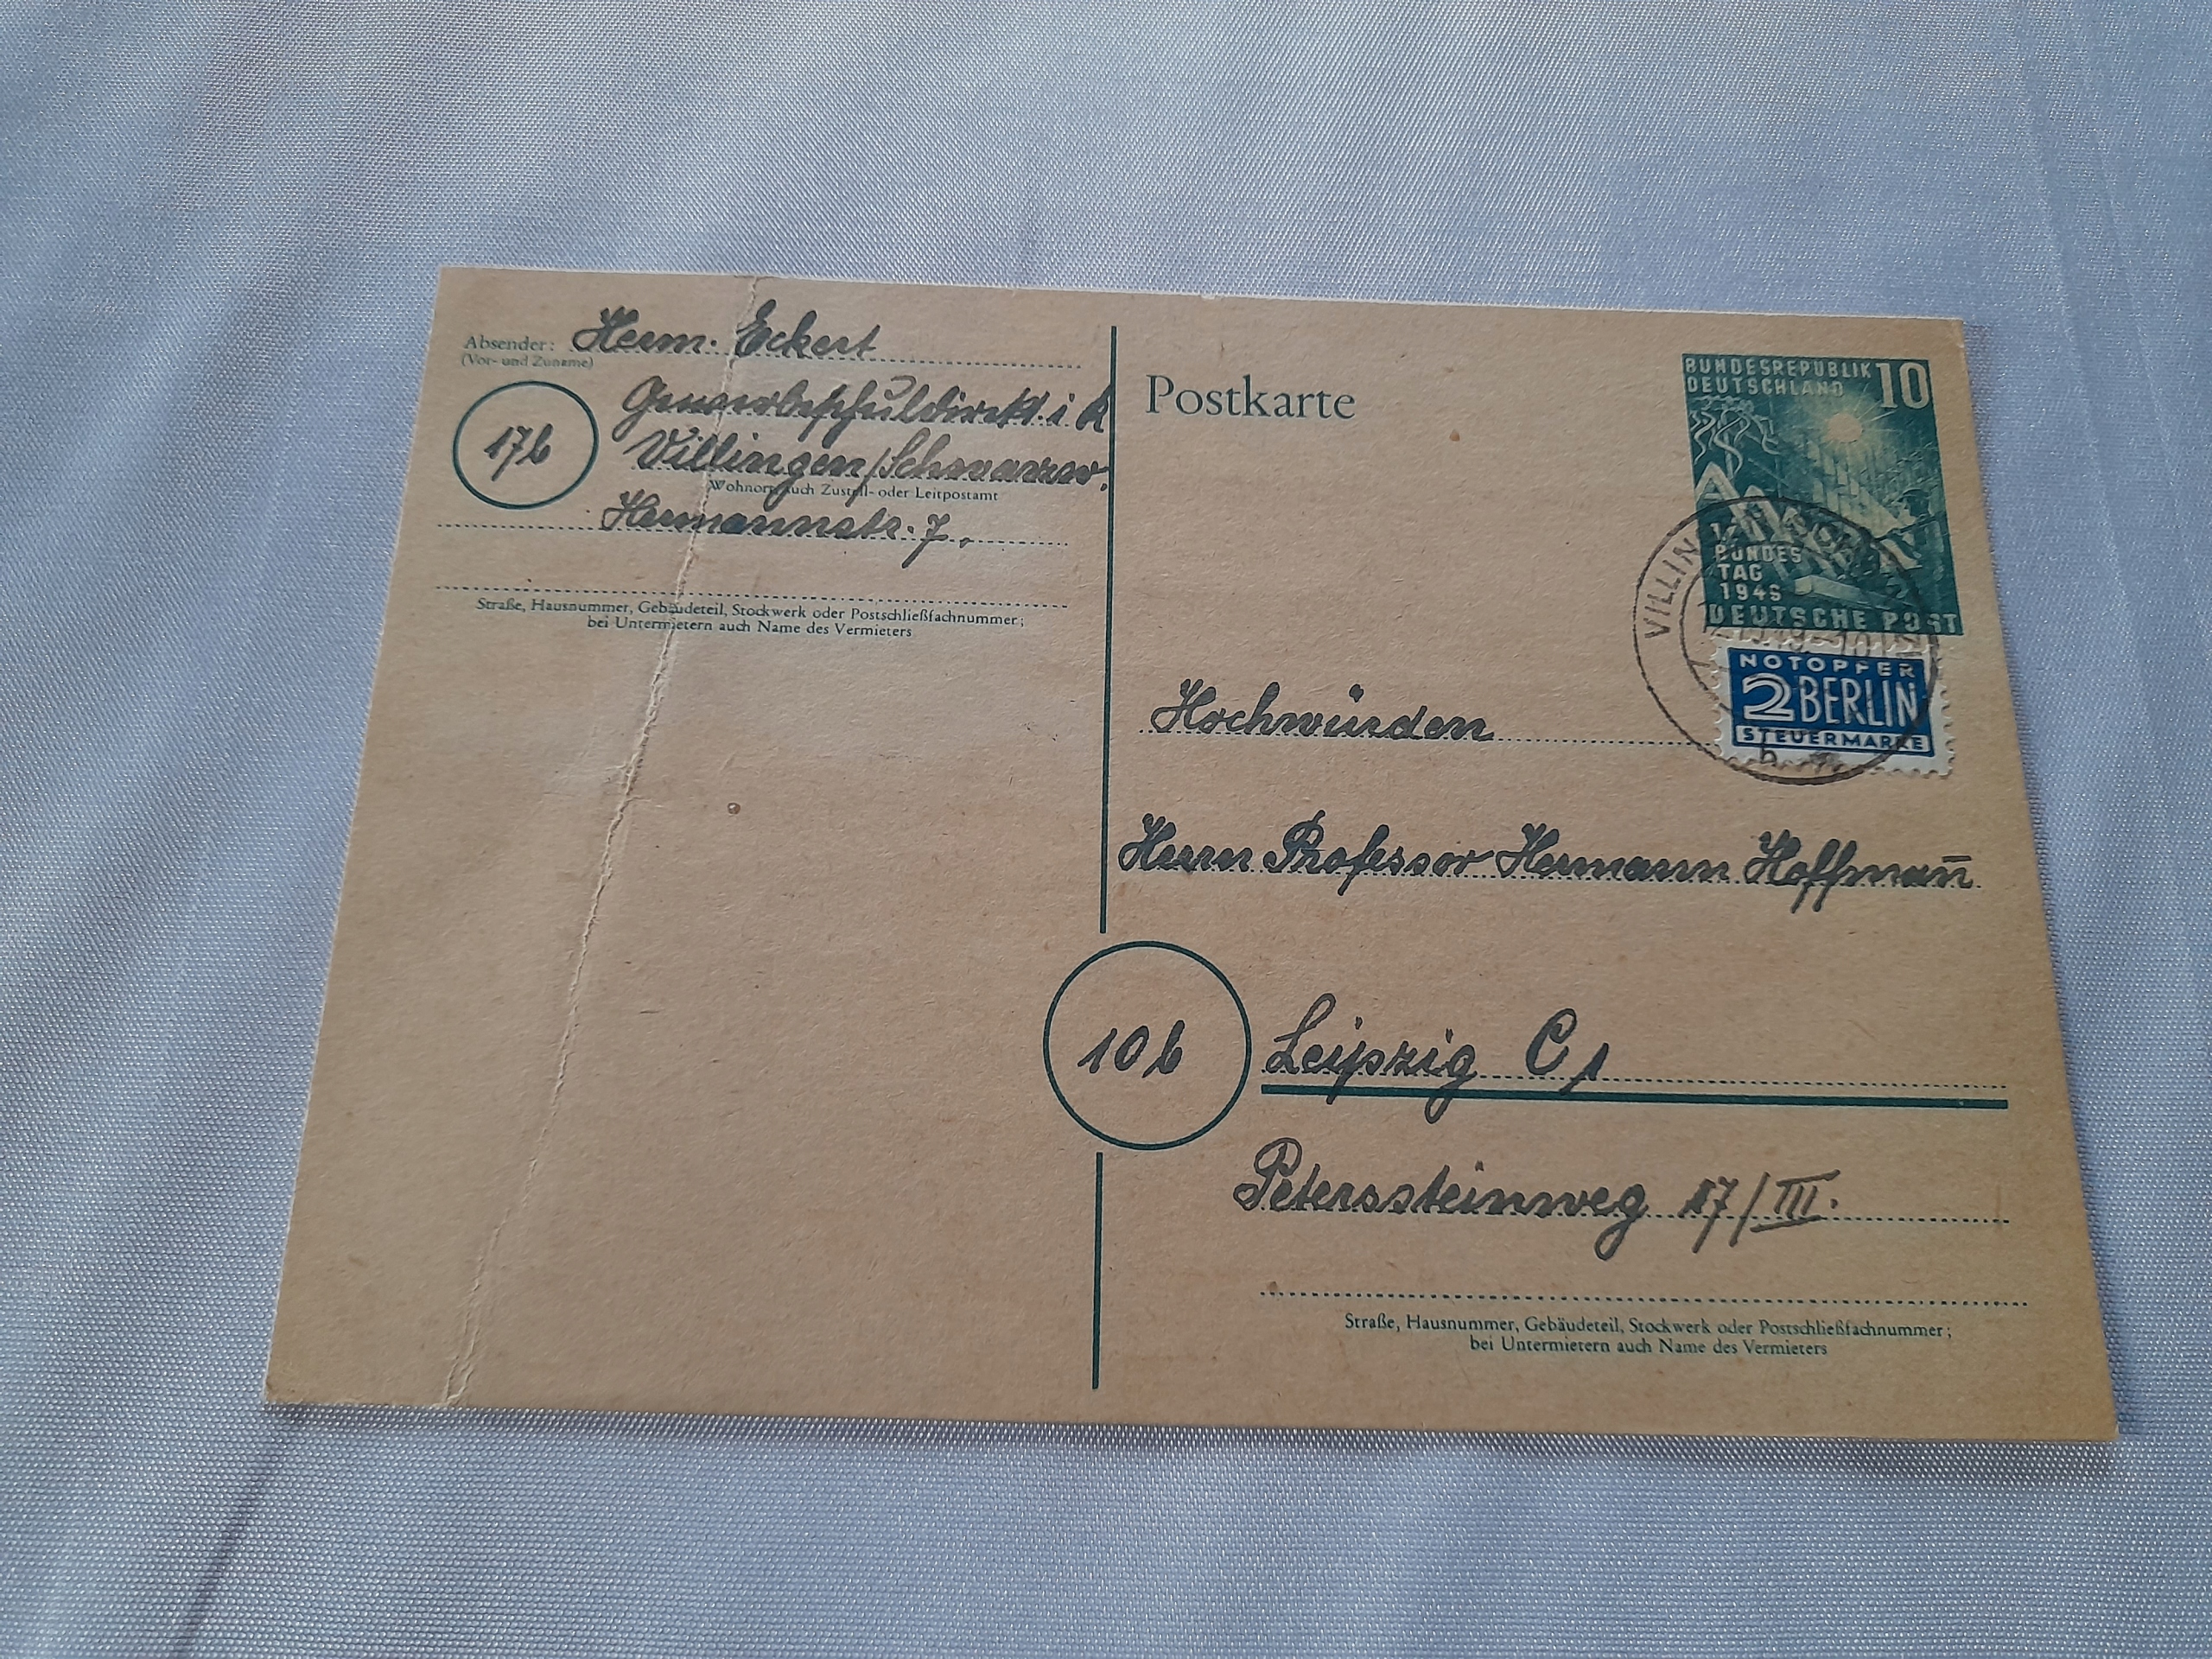 Absender: Herm. Eckert
(Vor- und Zuname)
17b
Gewerbeschuldirekt. i. R
Villingen/Schwarzw.
Wohnort, auch Zustell- oder Leitpostamt
Hermannstr. 7.
Straße, Hausnummer, Gebäudeteil, Stockwerk oder Postschließfachnummer;
bei Untermietern auch Name des Vermieters
Postkarte
BUNDESREPUBLIK 10
DEUTSCHLAND
BUNDES
TAG
1949
DEUTSCHE POST
VILLIN
NOTOPFER
2 BERLIN
STEUERMARKE
b
Hochwürden
Herrn Professor Hermann Hoffman̄
10b
Leipzig C1
Peterssteinweg 17/III.
Straße, Hausnummer, Gebäudeteil, Stockwerk oder Postschließfachnummer;
bei Untermietern auch Name des Vermieters